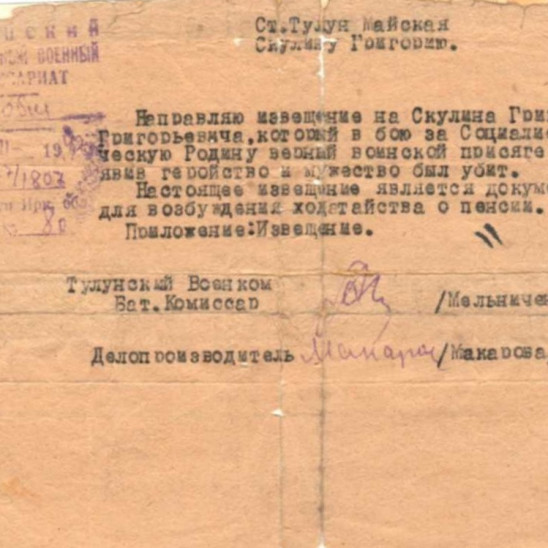 Ст.Тулун Майская
Скулину Григорию.
ВОЕННЫЙ
19
1807
80
Направляю извещение на Скулина Гри
Григорьевича,который в бою за Социалис
ческую Родину верный воинской присяге
явив геройство и мужество был убит.
Настоящее извещение является докуме
для возбуждения ходатайства о пенсии.
Приложение:Извещение.
Тулунский Военком
Бат.Комиссар /Мельниче
Делопроизводитель Макаро /Макарова